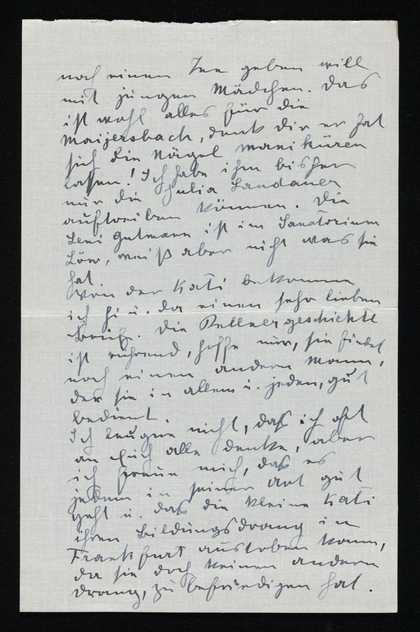 noch einen Tee geben will
mit jungen Mädchen. Das
ist wohl alles für die
denk dir er hat
sich die Nägel maniküren
lassen! Ich habe ihm bisher
nur die Julia Landauer
auftreiben können. Die
Leni Gutmann ist im Sanatorium
Löw, weiß aber nicht was sie
hat.
Von der Kati bekomme
ich hi u. da einen sehr lieben
Brief. Die
ist rührend, hoffe nur, sie findet
noch einen andern Mann,
der sie in allem u. jedem, gut
bedient.
Ich leugne nicht, daß ich oft
an Euch alle denke, aber
ich freue mich, daß es
jedem in seiner Art gut
geht u. daß die kleine Kati
ihren Bildungsdrang in
Frankfurt austoben kann,
da sie doch keinen andern
Drang, zu befriedigen hat.